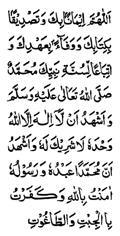 اَللّٰهُمَّ اِيْمَانًا بِكَ وَتَصْدِيْقًا
بِكِتَابِكَ وَوَفَاءً بِعَهْدِكَ وَ
اِتِّبَاعًا لِسُنَّةِ نَبِيِّكَ مُحَمَّدٍ
صَلَّى اللهُ تَعَالٰى عَلَيْهِ وَسَلَّمَ
وَاَشْهَدُ اَنْ لَّا اِلٰهَ اِلَّا اللهُ
وَحْدَهٗ لَا شَرِيْكَ لَهٗ وَاَشْهَدُ
اَنَّ مُحَمَّدًا عَبْدُهٗ وَرَسُوْلُهٗ
اٰمَنْتُ بِاللهِ وَكَفَرْتُ
بِالْجِبْتِ وَالطَّاغُوْتِ